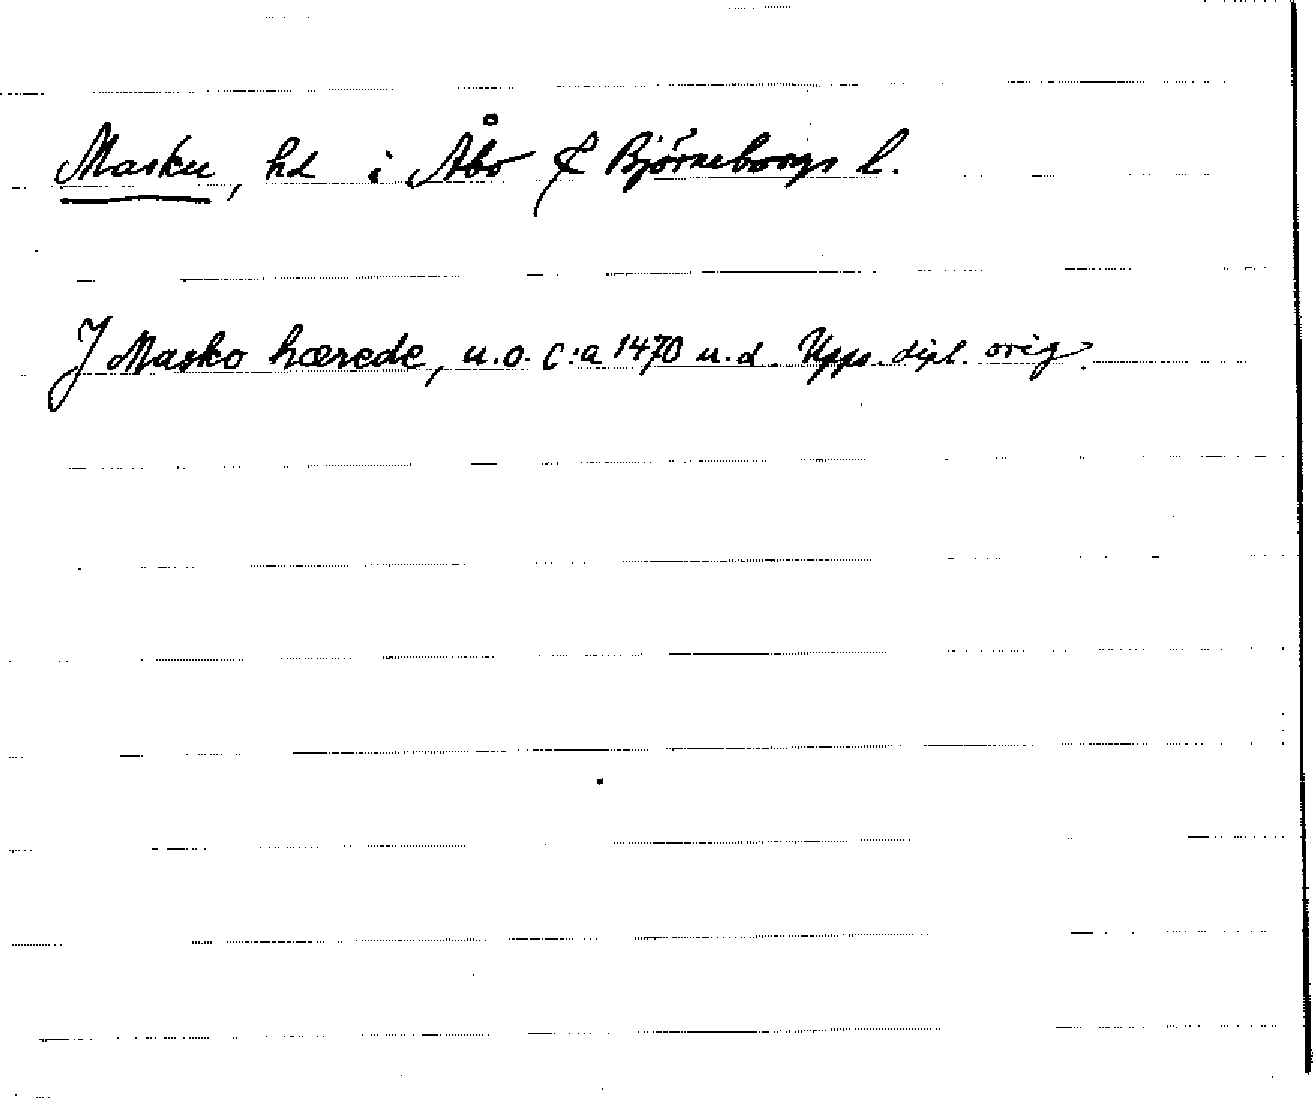 Masku, hd i Åbo & Björneborgs l.
J Masko hærede, u.o. c:a 1470 u.d. Upps. dipl. orig.